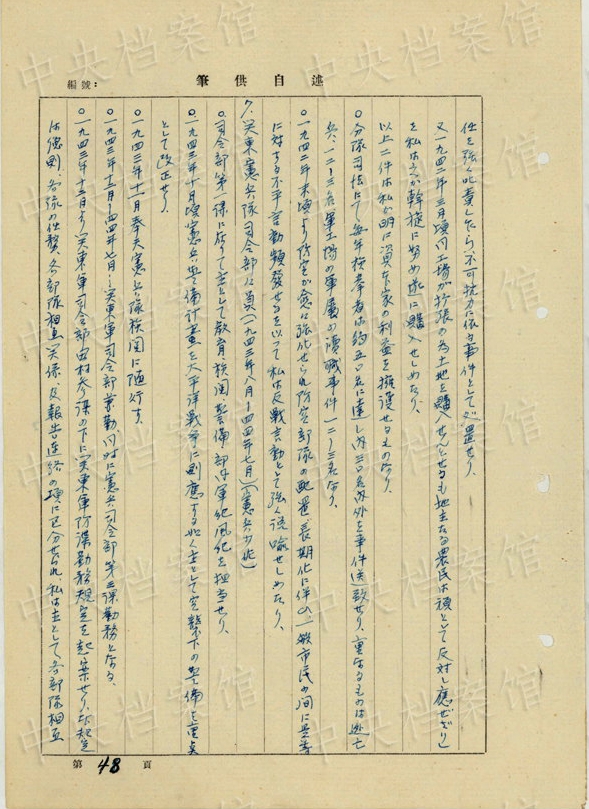 編號：
筆供自述
任を強く叱責したら不可抗力に依る事件として放置せり、
又一九四二年三月頃同工場が拡張の為土地を購入せんとせるも地主たる農民は頑として反対し應ぜざりし
を私は之が斡旋に努め遂に購入せしめたり、
以上二件は私が明に資本家の利益を擁護せるものなり、
〇分隊司法にて毎年検挙者は約五〇名に達し内三〇名内外を事件送致せり、重なるものは逃亡
兵、一二－三名軍工場の軍属の瀆職事件一二－三名なり、
〇一九四二年末頃より防空が愈々強化せられ防空部隊の配置長期化に伴ひ一般市民の間に是等
に対する不平言動頻発せるを以って私は反戦言動として強く説諭せしめたり、
7、関東憲兵隊司令部部員（一九四三年八月－四四年七月）（憲兵少佐）
〇司令部第一課に在りて主として教育、検閲、警備部隊軍紀風紀を担当せり、
〇一九四三年十月頃憲兵警備計画を太平洋戦争に則應する如く主として空襲下の警備を重点
として改正せり、
〇一九四三年十一月奉天憲兵隊検閲に随行す、
〇一九四三年十二月－四四年七月、関東軍司令部兼勤同時に憲兵司令部第三課勤務となる、
〇一九四三年十二月より関東軍司令部田村参謀の下に関東軍防諜勤務規定を起案せり、本規定
は總則、各隊の任務、各部隊相互の関係、及報告連絡の項に区分せられ、私は主として各部隊相互
第 48 頁
中央档案馆